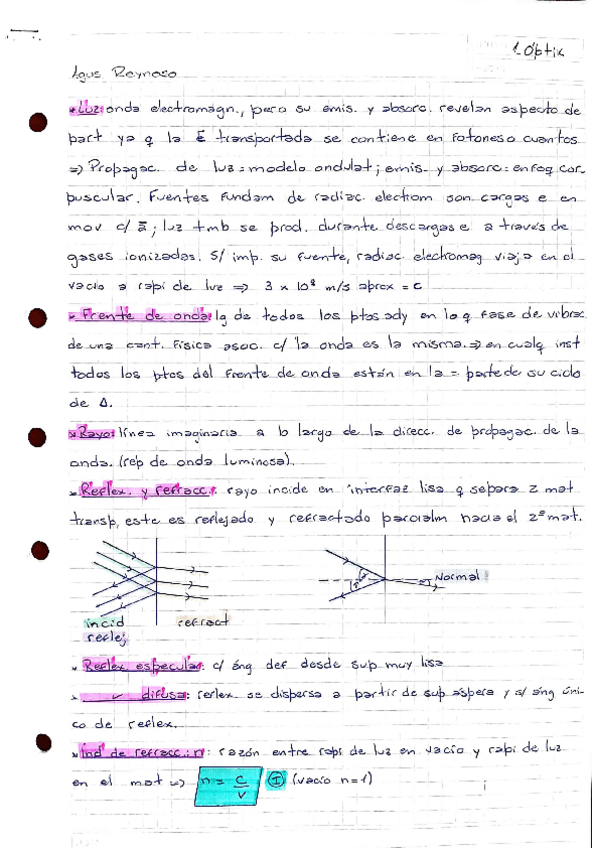 1 Optik
Agus Reynoso
* Luz: onda electromagn., pero su emis. y absorc. revelan aspecto de
part ya q la E transportada se contiene en fotones o cuantos
=> Propagac. de luz = modelo ondulat; emis. y absorc = enfoq cor-
puscular. Fuentes fundam de radiac electrom son cargas e en
mov c/ a; luz tmb se prod. durante descargas e a través de
gases ionizados. S/ imp. su fuente, radiac electromag viaja en el
vacío a rapi de luz => 3 x 10⁸ m/s aprox = c
* Frente de onda: lg de todos los ptos ady en lo q fase de vibrac
de una cant. física asoc. c/ la onda es la misma. => en cualq inst
todos los ptos del frente de onda están en la = parte de su ciclo
de Δ.
* Rayo: línea imaginaria a lo largo de la direcc. de propagac. de la
onda. (rep de onda luminosa).
* Reflex. y refracc.: rayo incide en interfaz lisa q separa 2 mat
transp, este es reflejado y refractado parcialm hacia el 2º mat.
Normal
incid
reflej
refract
* Reflex especular: c/ áng def desde sup muy lisa
* ✓ difusa: reflex. se dispersa a partir de sup áspera y s/ áng úni-
co de reflex.
* Ind de refracc.: n: razón entre rapi de luz en vacío y rapi de luz
en el mat => n = c/v (I) (vacío n=1)